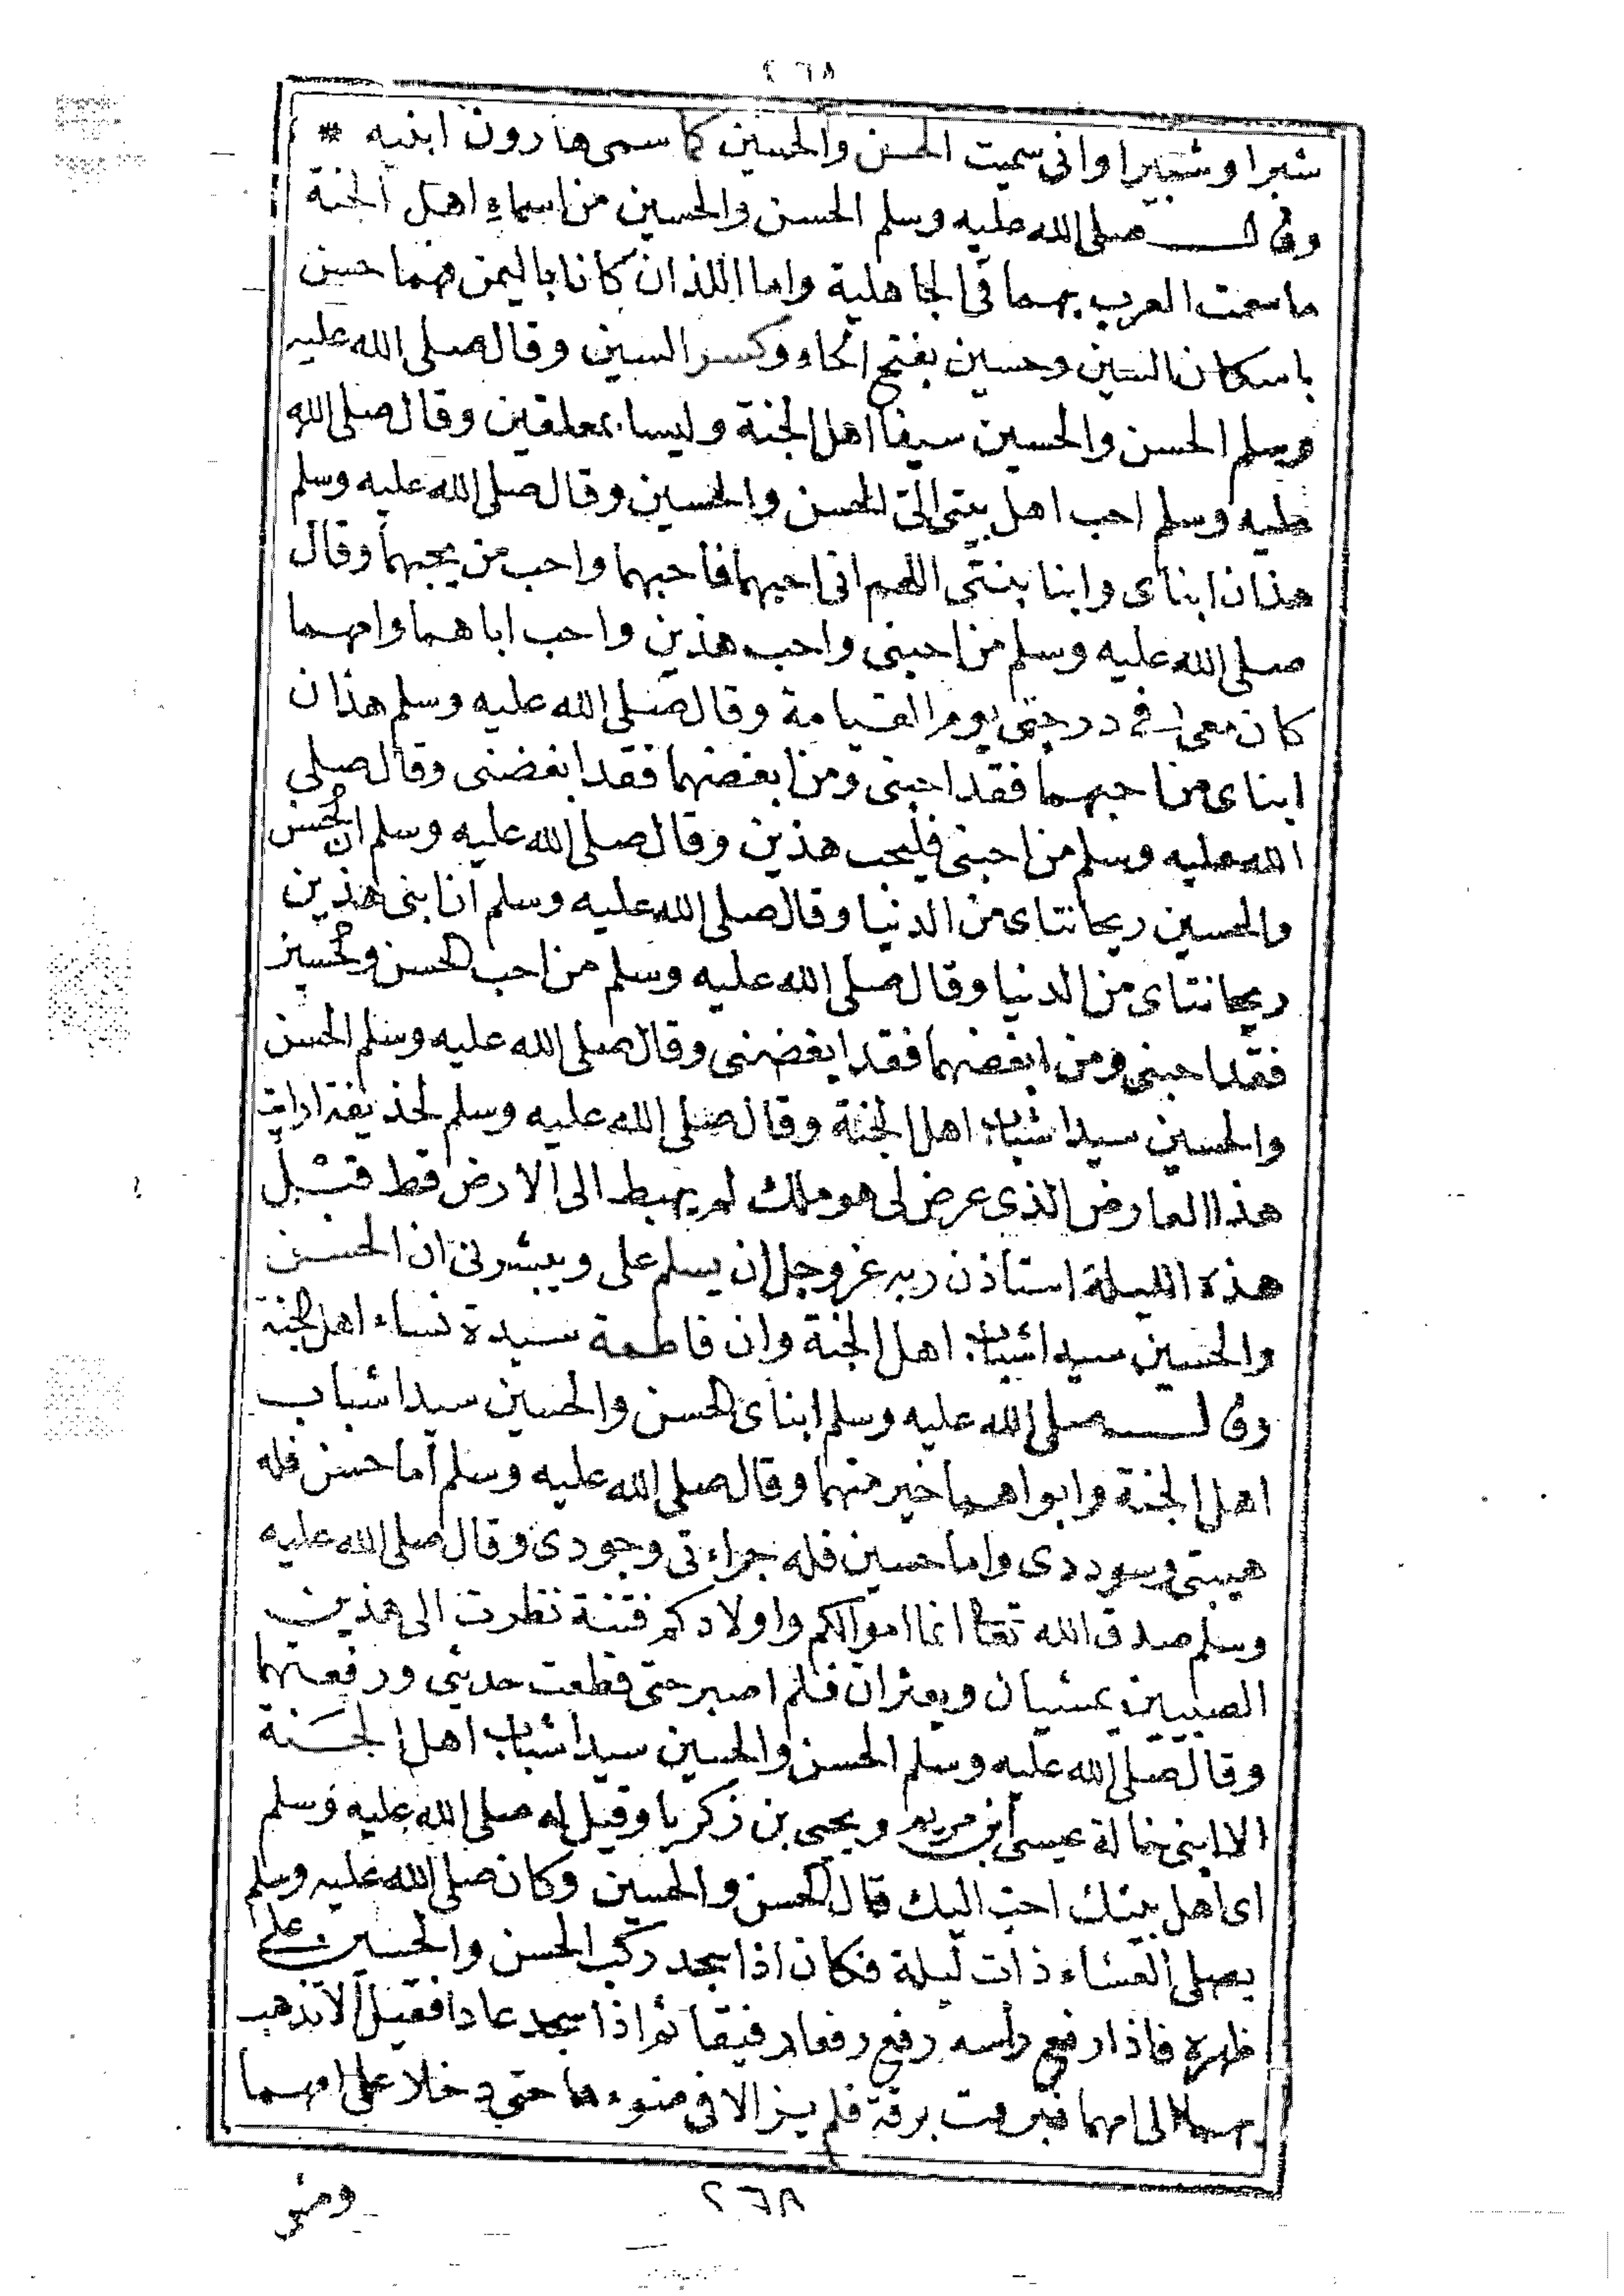 ٢٦٨
شبرا وشبيرا وانى سميت الحسن والحسين كما سمى هارون ابنيه *
وقال صلى الله عليه وسلم الحسن والحسين من اسماء اهل الجنة
ما سمت العرب بهما فى الجاهلية واما اللذان كانا باليمن فهما حسن
باسكان السين وحسين بفتح الحاء وكسر السين وقال صلى الله عليه
وسلم الحسن والحسين سيفا اهل الجنة وليسا بمعلقين وقال صلى الله
عليه وسلم احب اهل بيتى الىّ الحسن والحسين وقال صلى الله عليه وسلم
هذان ابناى وابنا بنتى اللهم انى احبهما فاحبهما واحب من يحبهما وقال
صلى الله عليه وسلم من احبنى واحب هذين واحب اباهما وامهما
كان معى فى درجتى يوم القيامة وقال صلى الله عليه وسلم هذان
ابناى من احبهما فقد احبنى ومن ابغضهما فقد ابغضنى وقال صلى
الله عليه وسلم من احبنى فليحب هذين وقال صلى الله عليه وسلم ان الحسن
والحسين ريحانتاى من الدنيا وقال صلى الله عليه وسلم ان ابنى هذين
ريحانتاى من الدنيا وقال صلى الله عليه وسلم من احب الحسن والحسين
فقد احبنى ومن ابغضهما فقد ابغضنى وقال صلى الله عليه وسلم الحسن
والحسين سيدا شباب اهل الجنة وقال صلى الله عليه وسلم لحذيفة ارايت
هذا العارض الذى عرض لى هو ملك لم يهبط الى الارض قط قبل
هذه الليلة استاذن ربه عز وجل ان يسلم على ويبشرنى ان الحسن
والحسين سيدا شباب اهل الجنة وان فاطمة سيدة نساء اهل الجنة
وقال صلى الله عليه وسلم ابناى الحسن والحسين سيدا شباب
اهل الجنة وابواهما خير منهما وقال صلى الله عليه وسلم أما حسن فله
هيبتى وسوددى واما حسين فله جراءتى وجودى وقال صلى الله عليه
وسلم صدق الله تعا انما اموالكم واولادكم فتنة نظرت الى هذين
الصبيين يمشيان ويعثران فلم اصبر حتى قطعت حديثى ورفعتهما
وقال صلى الله عليه وسلم الحسن والحسين سيدا شباب اهل الجنة
الا ابنى خالة عيسى ابن مريم ويحيى بن زكريا وقيل له صلى الله عليه وسلم
اى اهل بيتك احب اليك قال الحسن والحسين وكان صلى الله عليه وسلم
يصلى العشاء ذات ليلة فكان اذا سجد ركب الحسن والحسين على
ظهره فاذا رفع راسه رفع رفعا رفيقا ثم اذا سجد عادا فقيل ألا تذهب
بهما الى امهما فبرقت برقة فلم يزالا فى ضوءها حتى دخلا على امهما
ومنى
٢٦٨